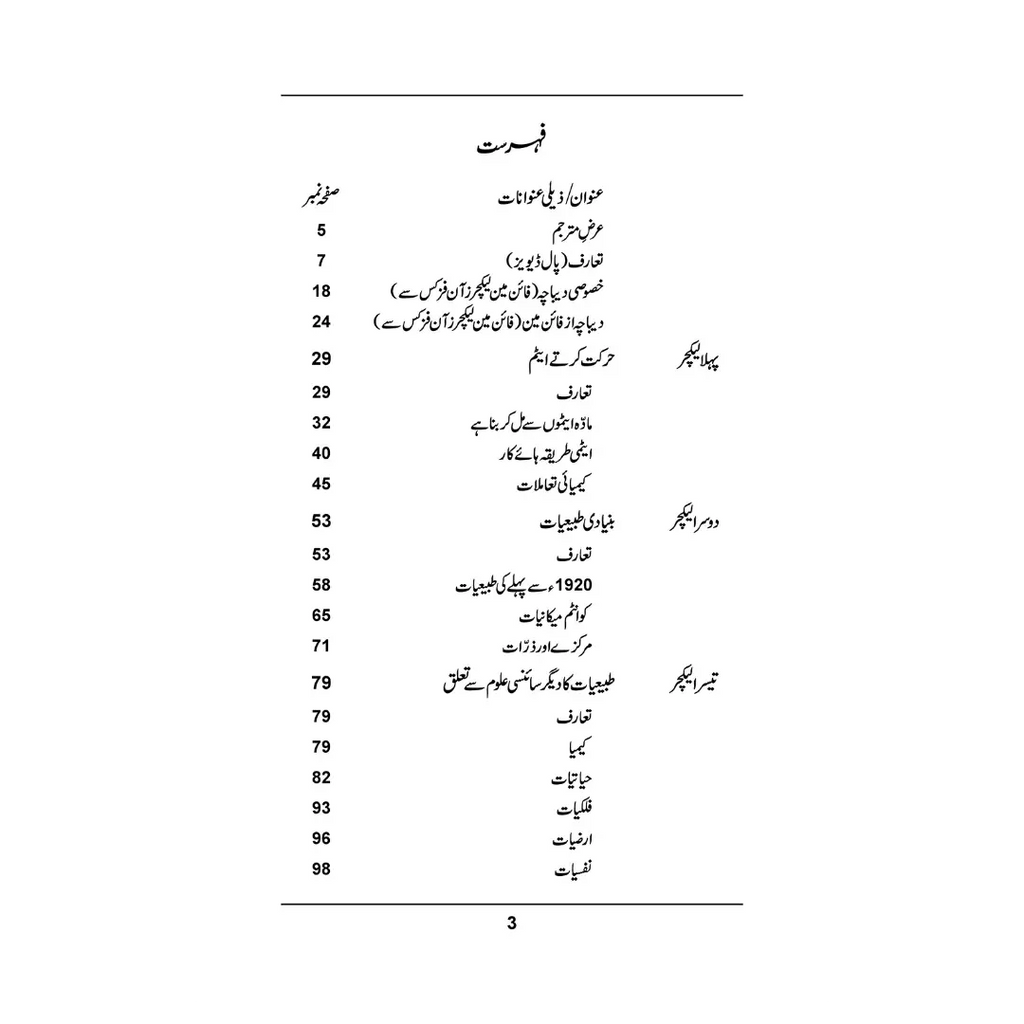 فہرست
عنوان/ذیلی عنوانات صفحہ نمبر
عرضِ مترجم 5
تعارف (پال ڈیویز) 7
خصوصی دیباچہ (فائن مین لیکچرز آن فزکس سے) 18
دیباچہ از فائن مین (فائن مین لیکچرز آن فزکس سے) 24
پہلا لیکچر حرکت کرتے ایٹم 29
تعارف 29
مادّہ ایٹموں سے مل کر بنا ہے 32
ایٹمی طریقہ ہائے کار 40
کیمیائی تعاملات 45
دوسرا لیکچر بنیادی طبیعیات 53
تعارف 53
1920ء سے پہلے کی طبیعیات 58
کوانٹم میکانیات 65
مرکزے اور ذرّات 71
تیسرا لیکچر طبیعیات کا دیگر سائنسی علوم سے تعلق 79
تعارف 79
کیمیا 79
حیاتیات 82
فلکیات 93
ارضیات 96
نفسیات 98
3